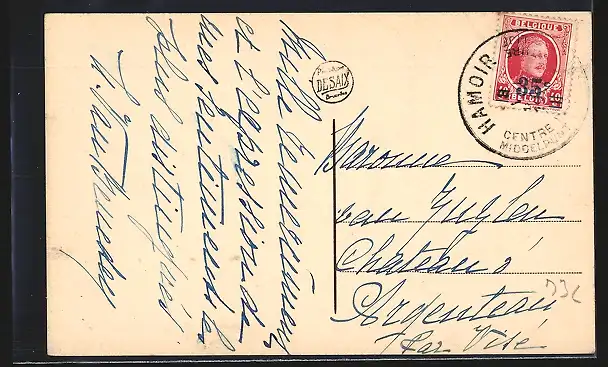 Mille remerciements
et l'expression de
mes sentiments les
plus distingués
DESAIX
Bruxelles
BELGIQUE
35
HAMOIR
CENTRE
Baronne
van Zuylen
Château d'
Argenteau
(par Visé